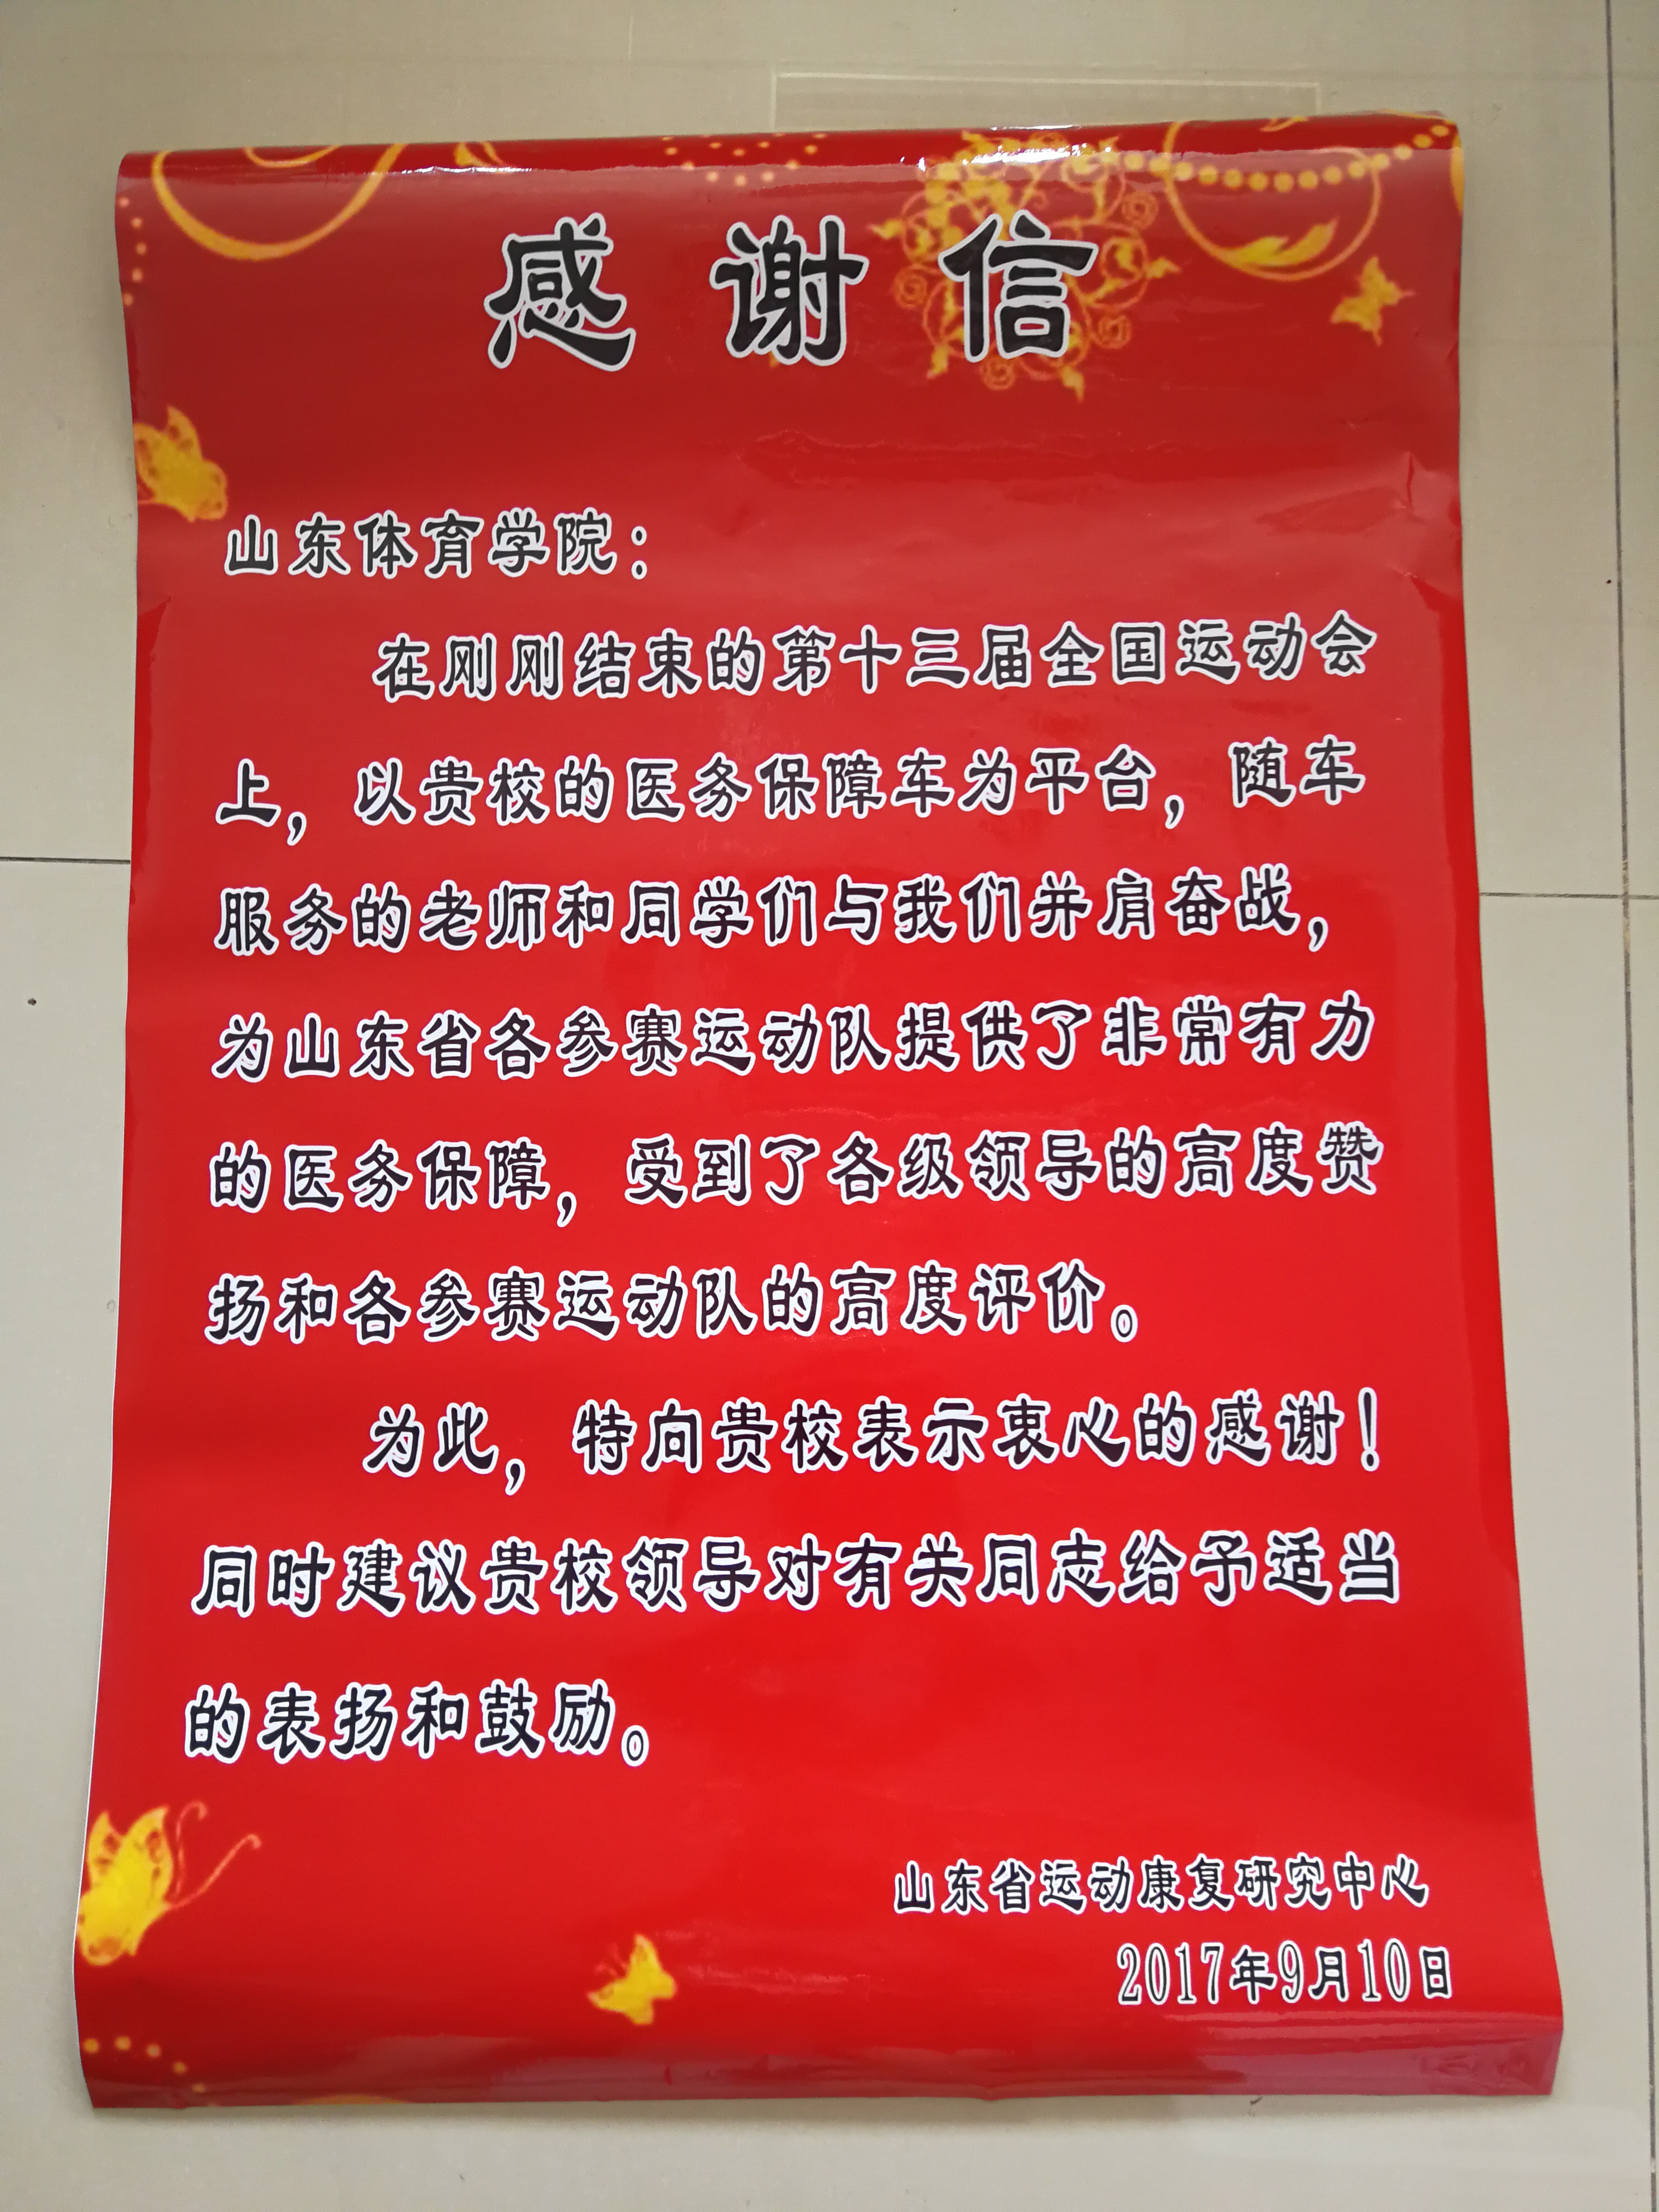 感谢信
山东体育学院：
在刚刚结束的第十三届全国运动会
上，以贵校的医务保障车为平台，随车
服务的老师和同学们与我们并肩奋战，
为山东省各参赛运动队提供了非常有力
的医务保障，受到了各级领导的高度赞
扬和各参赛运动队的高度评价。
为此，特向贵校表示衷心的感谢！
同时建议贵校领导对有关同志给予适当
的表扬和鼓励。
山东省运动康复研究中心
2017年9月10日